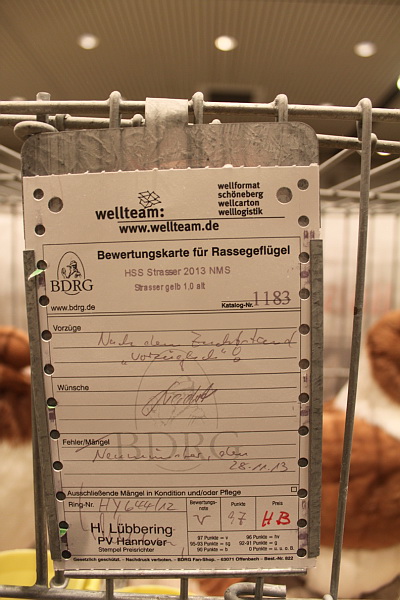 wellteam:
wellformat
schöneberg
wellcarton
welllogistik
www.wellteam.de
Bewertungskarte für Rassegeflügel
BDRG
www.bdrg.de
HSS Strasser 2013 NMS
Strasser gelb 1,0 alt
Katalog-Nr. 1183
Vorzüge
Nach dem Zuchtstand
"Vorzüglich"
Wünsche
BDRG
Fehler/Mängel
Neumünster, den
28.11.13
Ausschließende Mängel in Kondition und/oder Pflege
Ring-Nr. HY 644/12
Bewertungs-note
V
Punkte
97
Preis
HB
H. Lübbering
PV Hannover
Stempel Preisrichter
97 Punkte = v
96 Punkte = hv
95-93 Punkte = sg
92-91 Punkte = g
90 Punkte = b
0 Punkte = u. o. B.
Gesetzlich geschützt. - Nachdruck verboten. - BDRG Fan-Shop. - 63071 Offenbach - Best.-Nr. 622